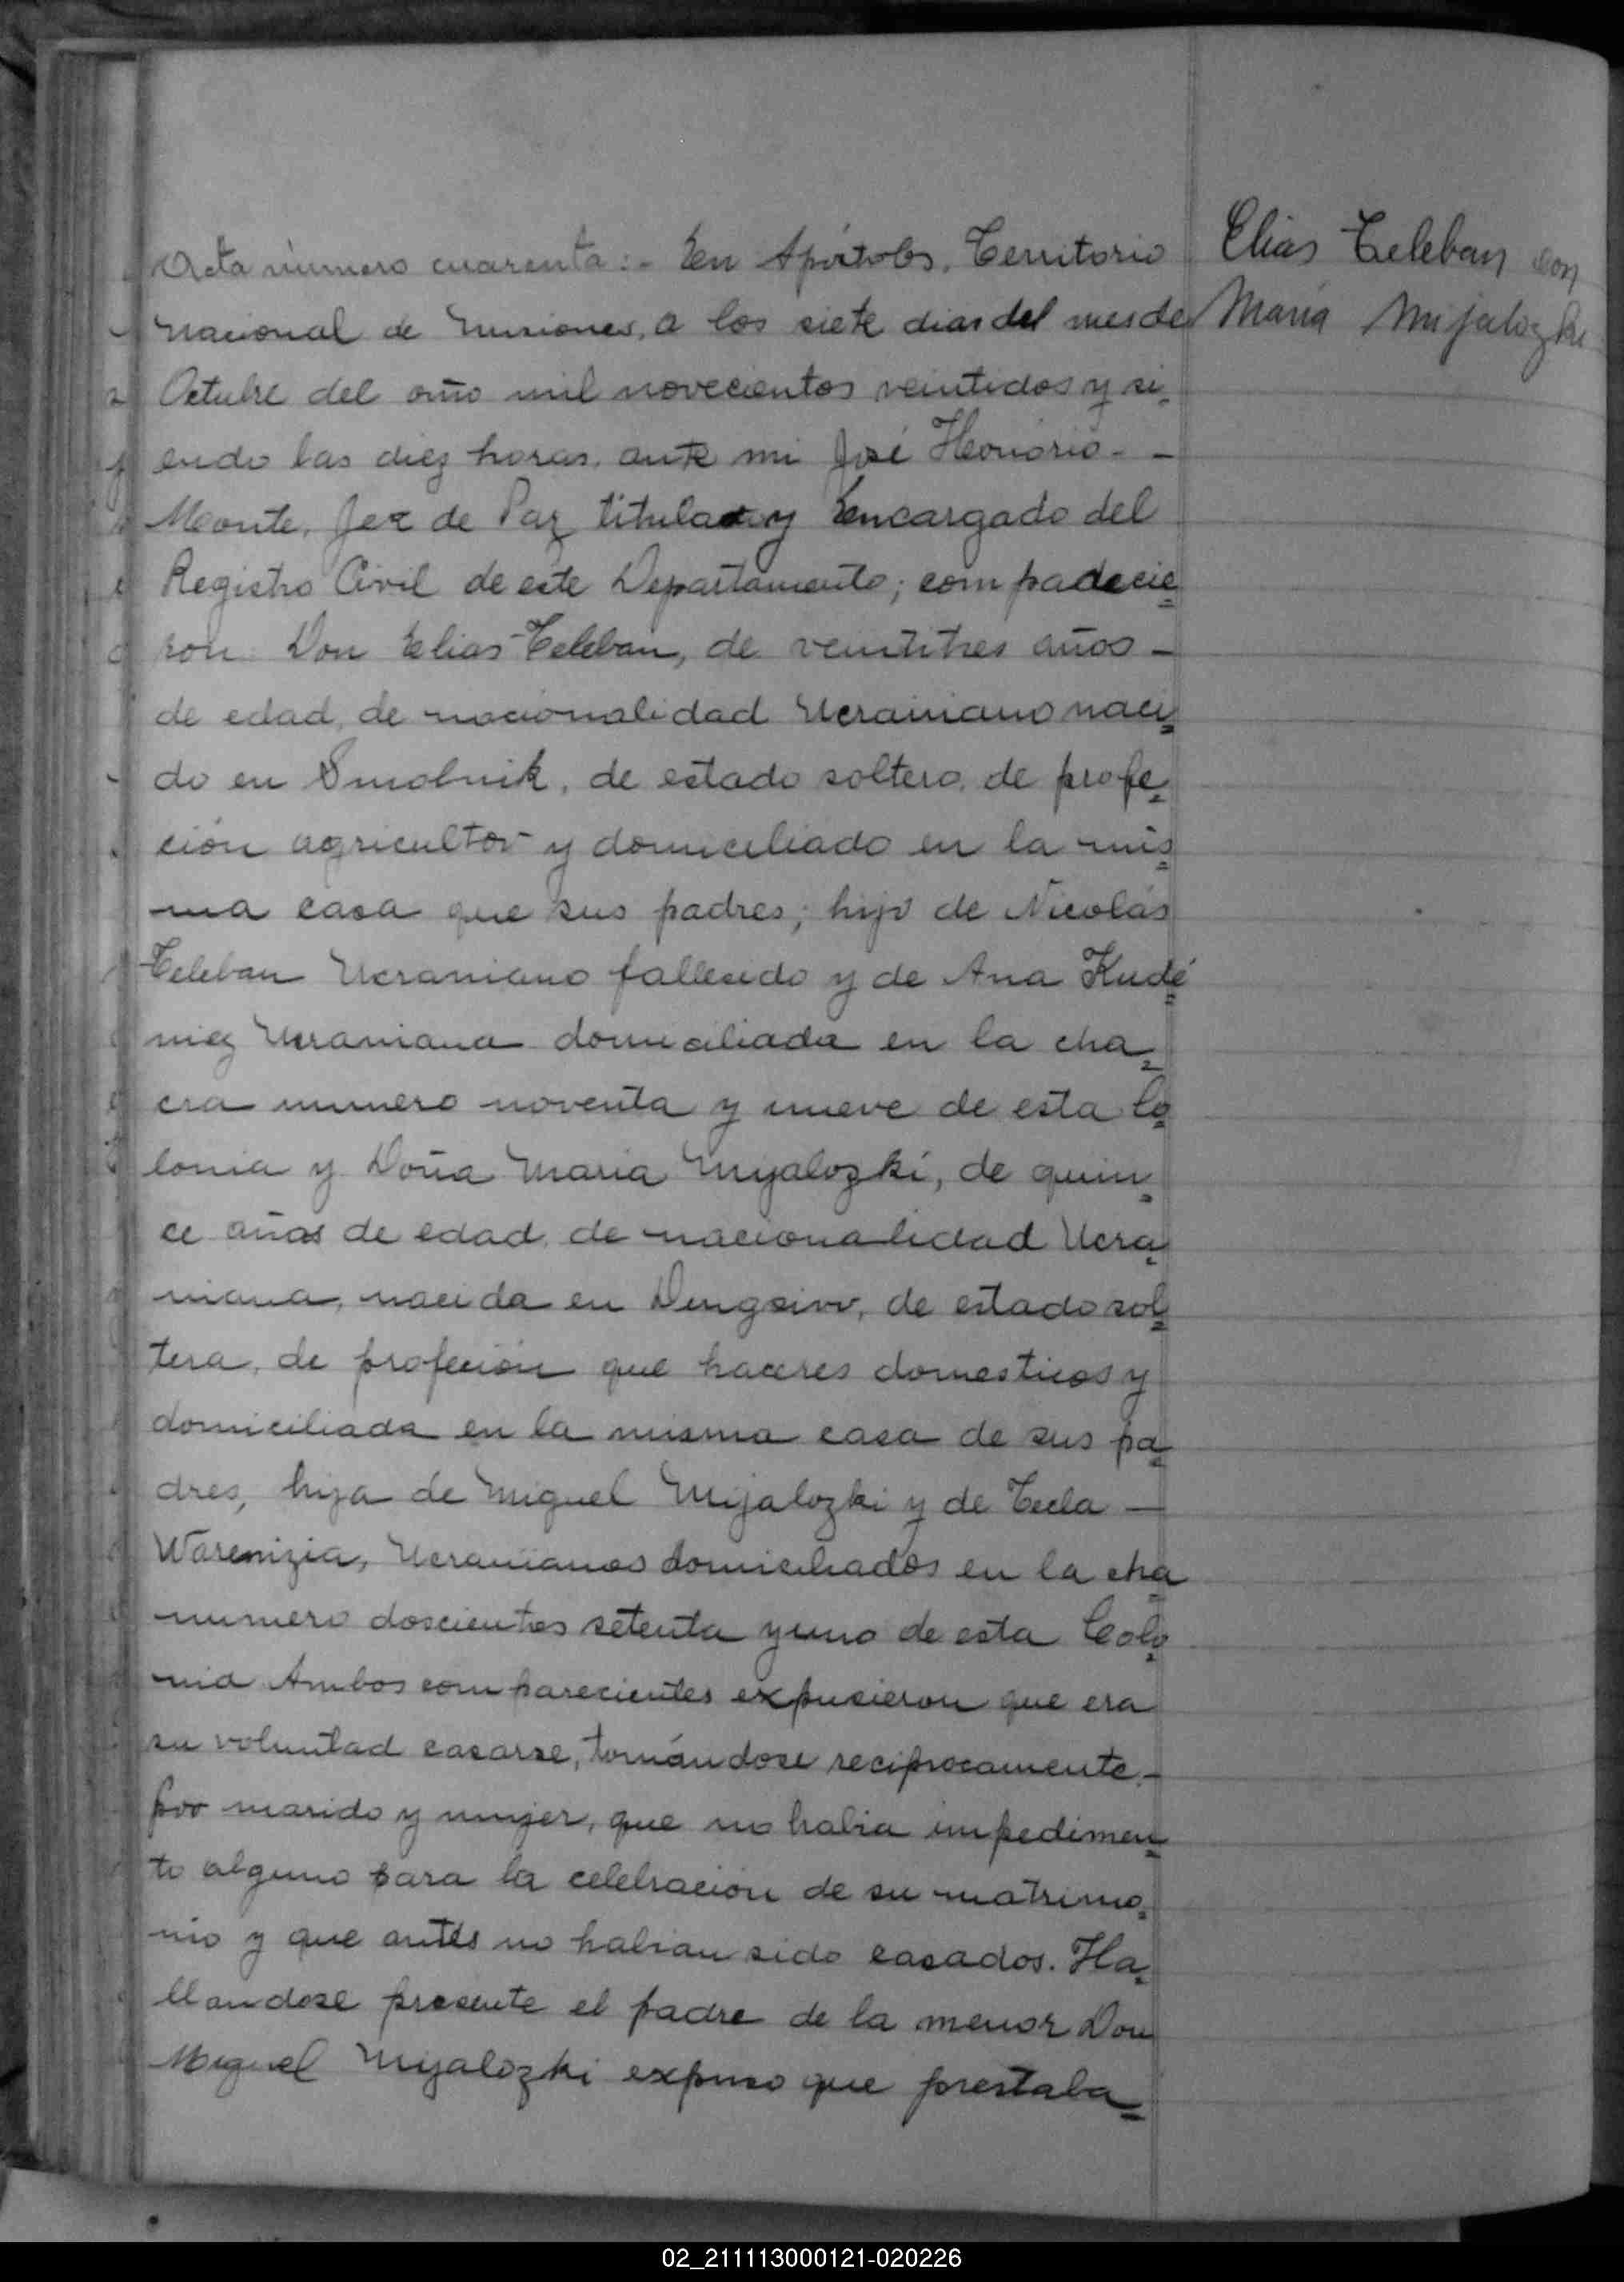 Acta número cuarenta:- En Apóstoles, Territorio
Nacional de Misiones, a los siete dias del mes de
Octubre del año mil novecientos veintidos y si-
endo las diez horas, ante mi José Honorio - -
Monte, Jez de Paz titular y Encargado del
Registro Civil de este Departamento; compadecie=
ron Don Elias Teleban, de veintitres años -
de edad, de nacionalidad Ucrainiano naci=
do en Smolnik, de estado soltero, de profe=
ción agricultor y domiciliado en la mis=
ma casa que sus padres; hijo de Nicolás
Teleban Ucraniano fallecido y de Ana Kudé=
niez Ucraniana domiciliada en la cha=
cra numero noventa y nueve de esta Co=
lonia y Doña Maria Mijalozki, de quin=
ce años de edad, de nacionalidad Ucra=
niana, nacida en, de estado sol=
tera, de profeción que haceres domesticos y
domiciliada en la misma casa de sus pa=
dres, hija de Miguel Mijalozki y de Tecla —
Warenizia, Ucranianos domiciliados en la cha=
numero doscientos setenta y uno de esta Colo=
nia Ambos comparecientes expusieron que era
su voluntad casarse, tomándose reciprocamente.-
por marido y mujer, que no habia impedimen=
to alguno para la celebración de su matrimo=
nio y que antes no habian sido casados. Ha=
llandose presente el padre de la menor Don
Miguel Mijalozki expuso que prestaba=
Elias Teleban con
Maria Mijalozki
02_211113000121-020226